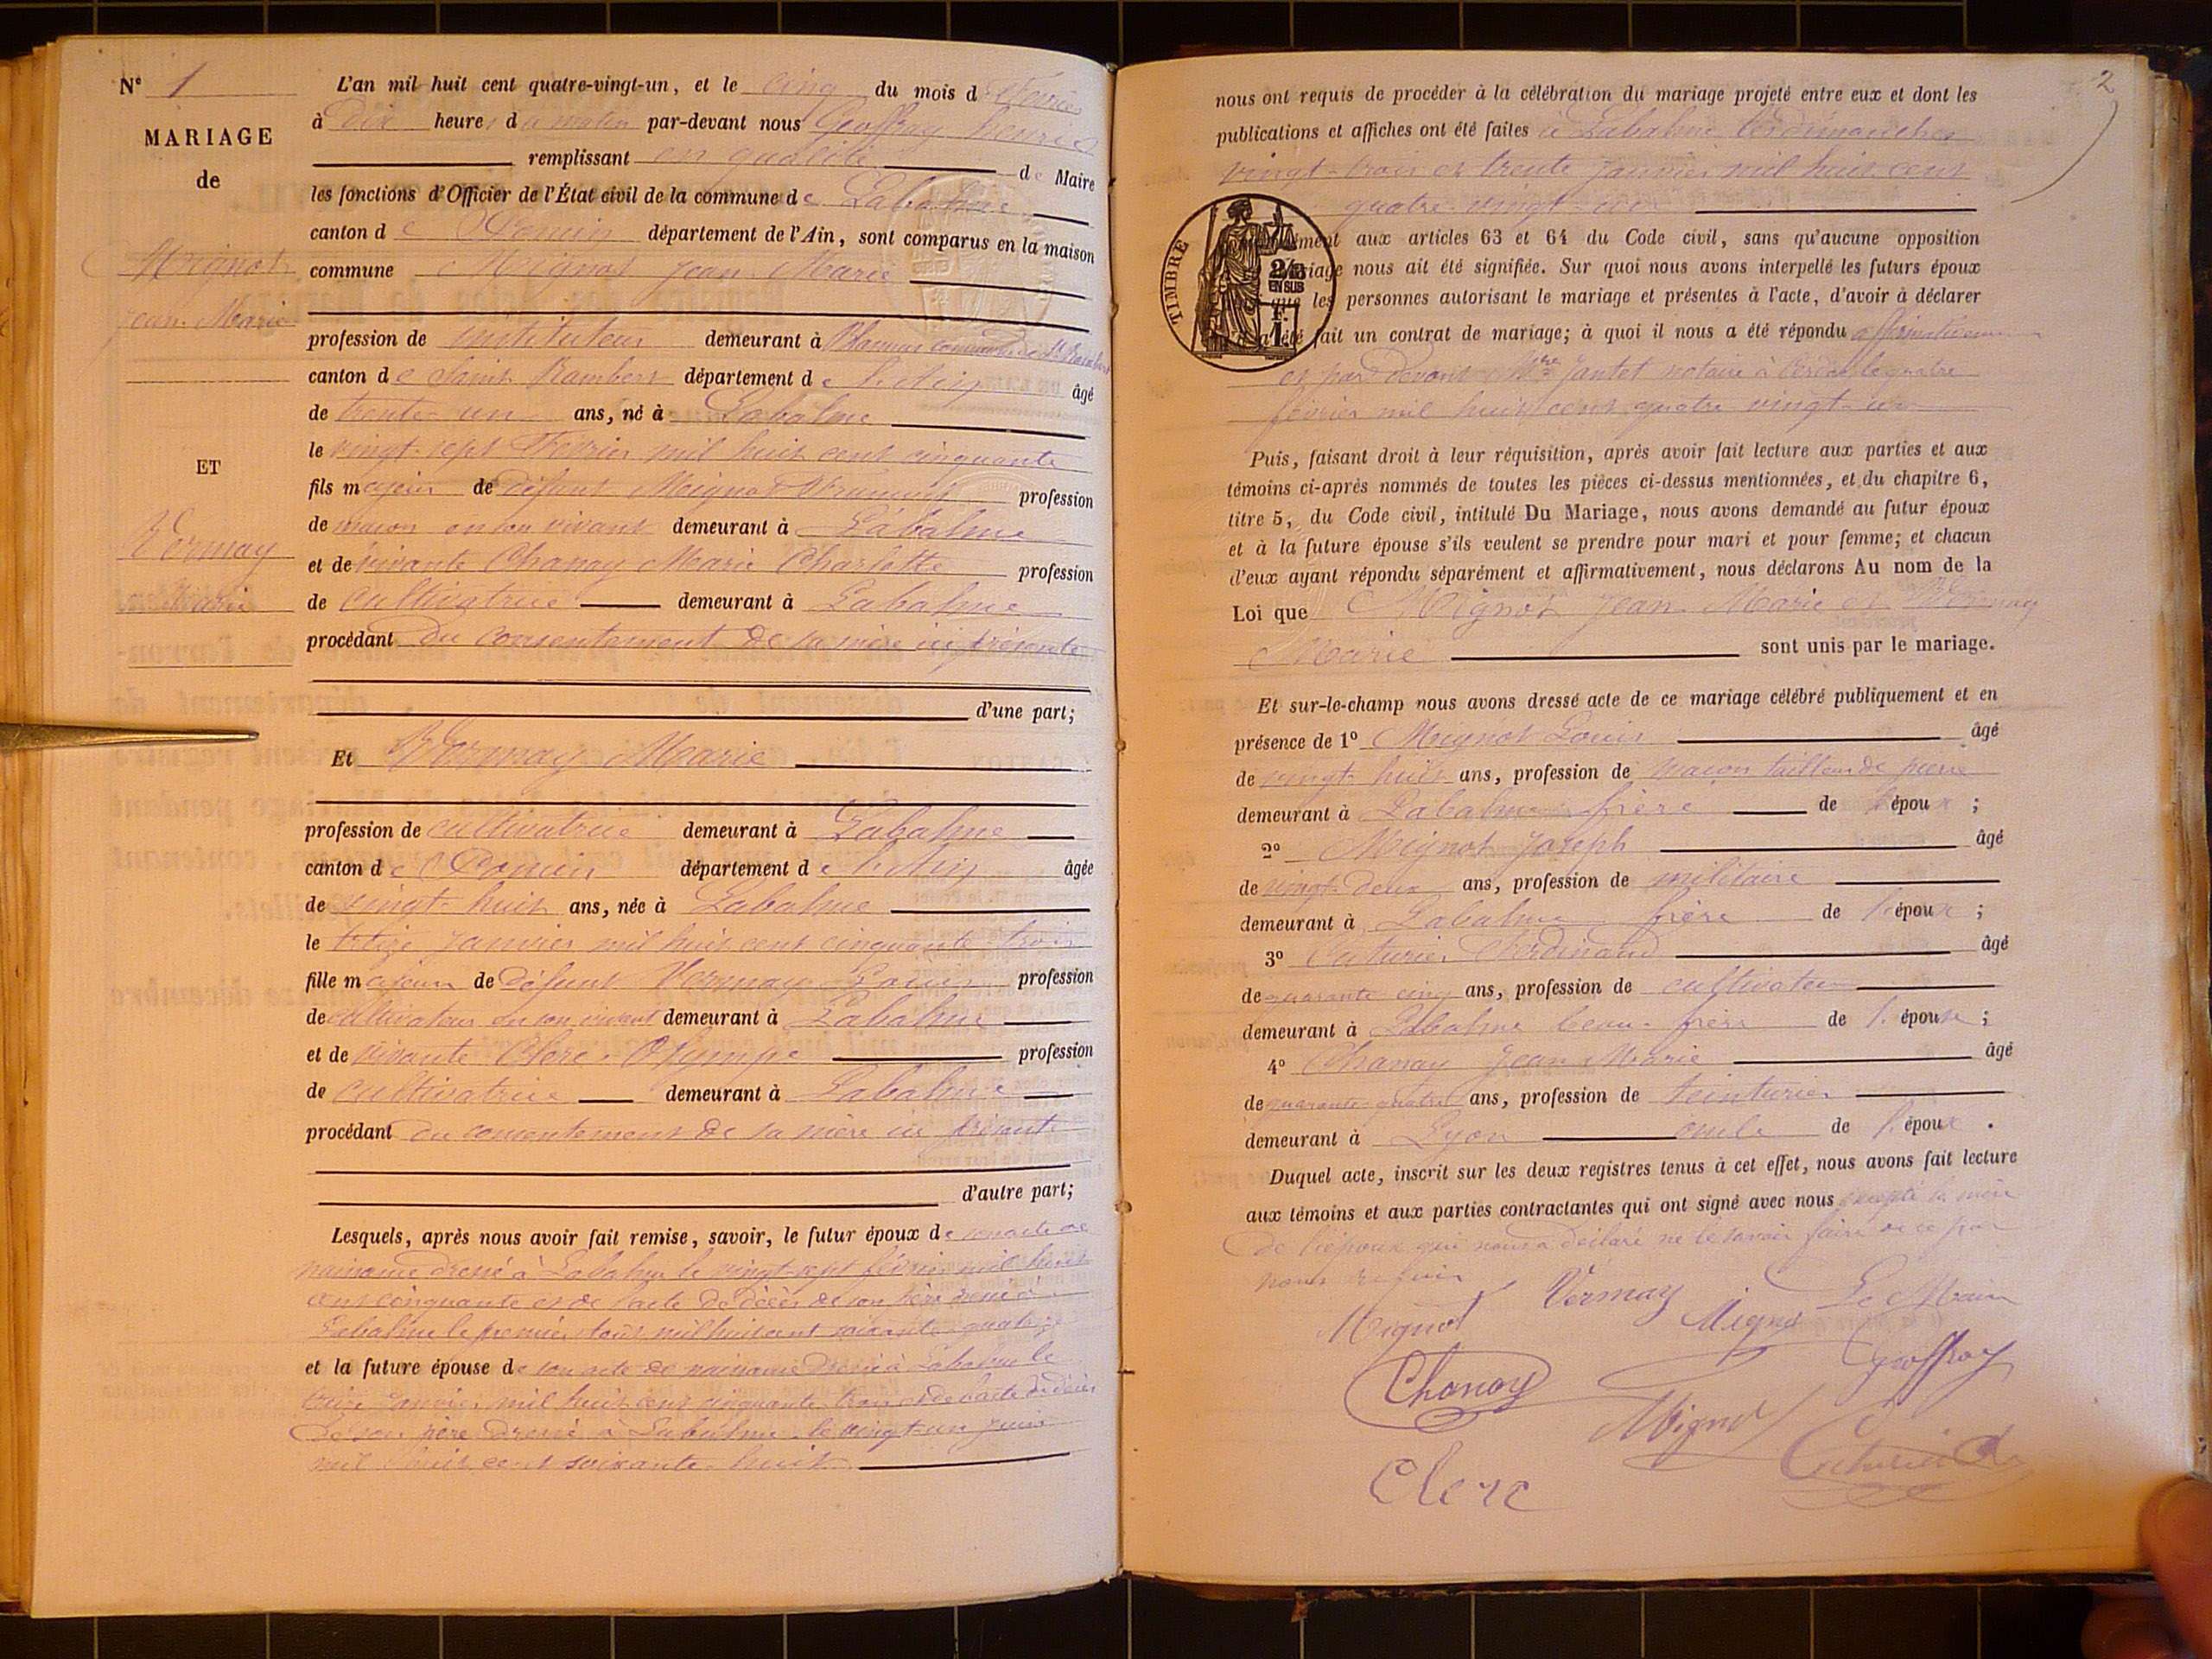 N° 1
MARIAGE
de
Mignot
Jean-Marie
ET
Vermay
Marie
L'an mil huit cent quatre-vingt-un, et le cinq du mois d février
à dix heures du matin par-devant nous Geoffray
remplissant en qualité de Maire
les fonctions d'Officier de l'État civil de la commune de Labalme
canton de Poncin département de l'Ain, sont comparus en la maison
commune Mignot Jean-Marie
profession de instituteur demeurant à commune de St Rambert
canton de Saint Rambert département de l'Ain âgé
de trente-un ans, né à Labalme
le vingt-sept Février mil huit cent cinquante
fils majeur de défunt Mignot François profession
de maçon en son vivant demeurant à Labalme
et de vivante Chanay Marie Charlotte profession
de cultivatrice demeurant à Labalme
procédant du consentement de sa mère ici présente
d'une part;
Et Vermay Marie
profession de cultivatrice demeurant à Labalme
canton de Poncin département de l'Ain âgée
de vingt-huit ans, née à Labalme
le treize janvier mil huit cent cinquante trois
fille majeure de défunt Vermay Louis profession
de cultivateur en son vivant demeurant à Labalme
et de vivante Clerc Olympe profession
de cultivatrice demeurant à Labalme
procédant du consentement de sa mère ici présente
d'autre part;
Lesquels, après nous avoir fait remise, savoir, le futur époux de son acte de
naissance dressé à Labalme le vingt-sept février mil huit
cent cinquante et de l'acte de décès de son père dressé à
Labalme le premier août mil huit cent soixante-quatorze
et la future épouse de son acte de naissance dressé à Labalme le
treize janvier mil huit cent cinquante-trois et de l'acte de décès
de son père dressé à Labalme le vingt-un juin
mil huit cent soixante-huit
2
nous ont requis de procéder à la célébration du mariage projeté entre eux et dont les
publications et affiches ont été faites à Labalme les dimanches
vingt-trois et trente janvier mil huit cent
quatre-vingt-un
TIMBRE
2/10 EN SUS
F. 1
aux articles 63 et 64 du Code civil, sans qu'aucune opposition
nous ait été signifiée. Sur quoi nous avons interpellé les futurs époux
que les personnes autorisant le mariage et présentes à l'acte, d'avoir à déclarer
a été fait un contrat de mariage; à quoi il nous a été répondu affirmativement
et par devant Mtre Jantet notaire à Cerdon le quatre
février mil huit cent quatre-vingt-un
Puis, faisant droit à leur réquisition, après avoir fait lecture aux parties et aux
témoins ci-après nommés de toutes les pièces ci-dessus mentionnées, et du chapitre 6,
titre 5, du Code civil, intitulé Du Mariage, nous avons demandé au futur époux
et à la future épouse s'ils veulent se prendre pour mari et pour femme; et chacun
d'eux ayant répondu séparément et affirmativement, nous déclarons Au nom de la
Loi que Mignot Jean-Marie et Vermay
Marie sont unis par le mariage.
Et sur-le-champ nous avons dressé acte de ce mariage célébré publiquement et en
présence de 1° Mignot Louis âgé
de vingt-huit ans, profession de maçon tailleur de pierre
demeurant à Labalme frère de l'époux ;
2° Mignot Joseph âgé
de vingt-deux ans, profession de militaire
demeurant à Labalme frère de l'époux ;
3° Cuturier Ferdinand âgé
de quarante-cinq ans, profession de cultivateur
demeurant à Labalme beau-frère de l'épouse ;
4° Chanay Jean Marie âgé
de quarante-quatre ans, profession de teinturier
demeurant à Lyon oncle de l'époux .
Duquel acte, inscrit sur les deux registres tenus à cet effet, nous avons fait lecture
aux témoins et aux parties contractantes qui ont signé avec nous excepté la mère
de l'époux qui nous a déclaré ne le savoir faire de ce par
nous requis
Mignot Vermay Mignot Le Maire
Chanay Geoffray
Mignot
Clerc Cuturier